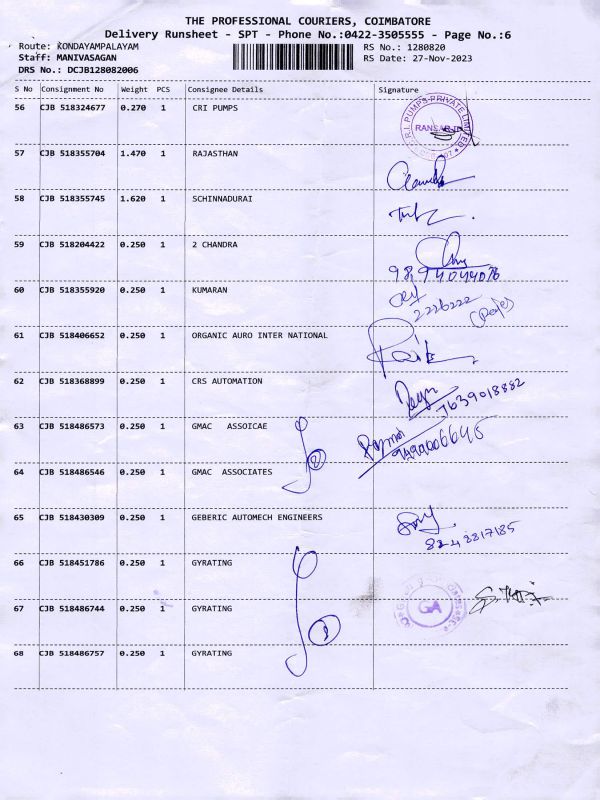 THE PROFESSIONAL COURIERS, COIMBATORE
Delivery Runsheet - SPT - Phone No.:0422-3505555 - Page No.:6
Route: KONDAYAMPALAYAM RS No.: 1280820
Staff: MANIVASAGAN RS Date: 27-Nov-2023
DRS No.: DCJB128082006
S No Consignment No Weight PCS Consignee Details Signature
56 CJB 518324677 0.270 1 CRI PUMPS
R.I. PUMPS PRIVATE LIMITED
57 CJB 518355704 1.470 1 RAJASTHAN
58 CJB 518355745 1.620 1 SCHINNADURAI
59 CJB 518204422 0.250 1 2 CHANDRA
9894044076
60 CJB 518355920 0.250 1 KUMARAN
2226222
61 CJB 518406652 0.250 1 ORGANIC AURO INTER NATIONAL
62 CJB 518368899 0.250 1 CRS AUTOMATION
7639018882
63 CJB 518486573 0.250 1 GMAC ASSOICAE
64 CJB 518486546 0.250 1 GMAC ASSOCIATES
2
65 CJB 518430309 0.250 1 GEBERIC AUTOMECH ENGINEERS
66 CJB 518451786 0.250 1 GYRATING
67 CJB 518486744 0.250 1 GYRATING
GA
68 CJB 518486757 0.250 1 GYRATING